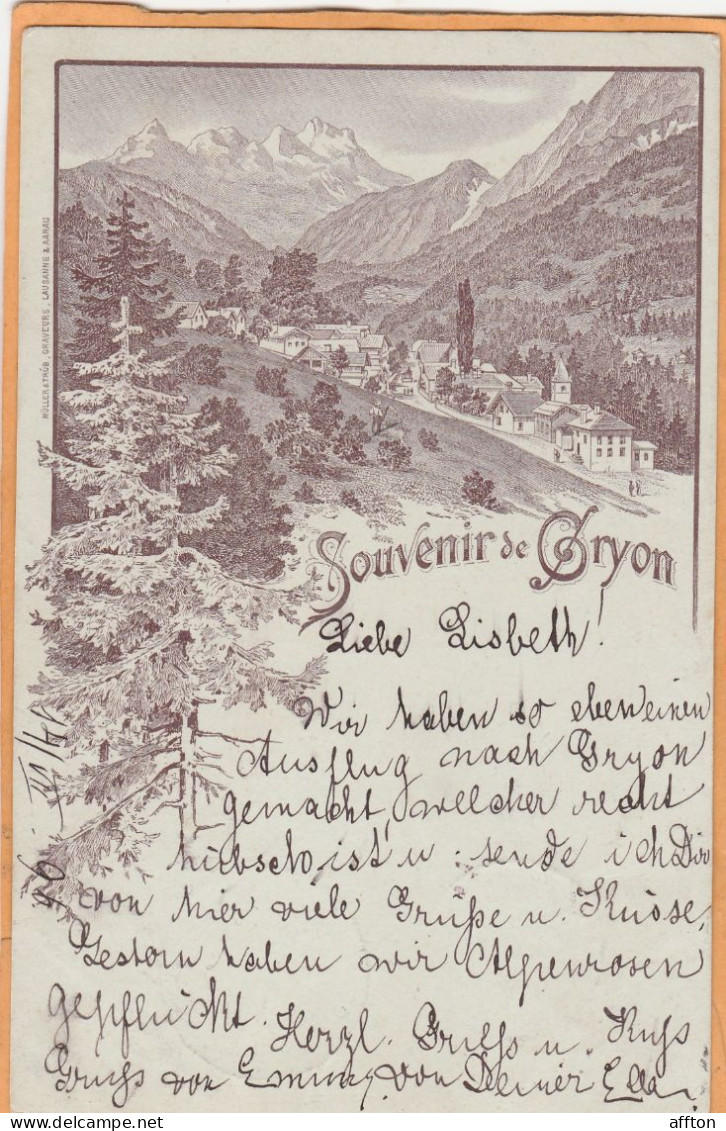 MÜLLER & TRÜB, GRAVEURS, LAUSANNE & AARAU
Souvenir de Gryon
Liebe Lisbeth!
Wir haben so eben einen
Ausflug nach Gryon
gemacht, welcher recht
hübsch ist u. sende ich Dir
von hier viele Grüße u. Küsse.
Gestern haben wir Alpenrosen
gepflückt. Herzl. Gruss u. Kuss
Gruss von Emmy, von Deiner Ella.
affton